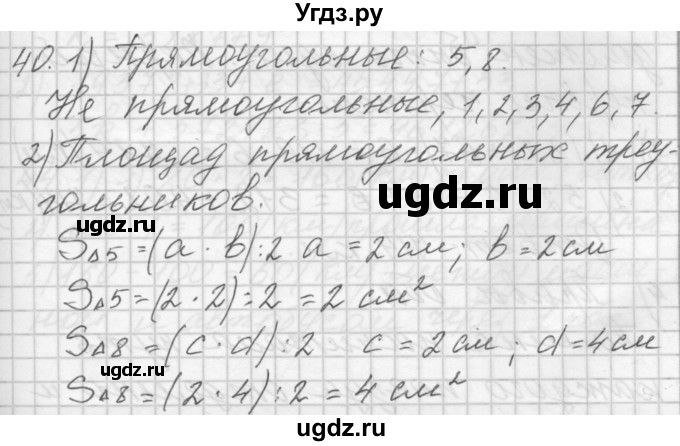 Угдз.ру
40. 1) Прямоугольные: 5, 8.
Не прямоугольные, 1, 2, 3, 4, 6, 7.
2) Площад прямоугольных треу-
гольников.
ugdz.ru
ugdz.ru
S△5 = (a · b) : 2 a = 2 см; b = 2 см
S△5 = (2 · 2) : 2 = 2 см²
ugdz.ru
ugdz.ru
S△8 = (c · d) : 2 c = 2 см; d = 4 см
S△8 = (2 · 4) : 2 = 4 см²
ugdz.ru